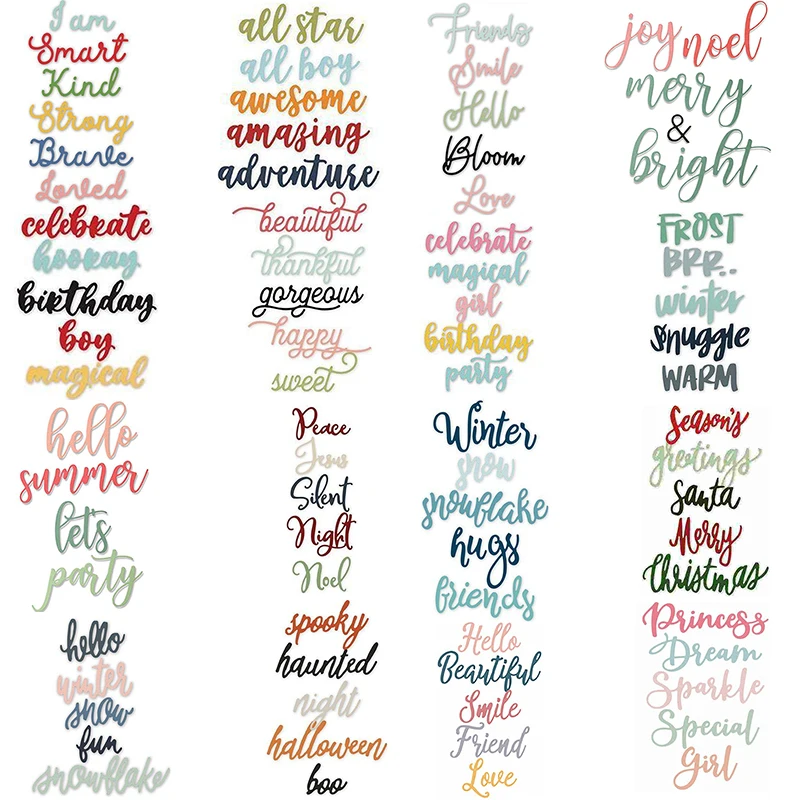 I am
Smart
Kind
Strong
Brave
Loved
celebrate
hooray
birthday
boy
magical
hello
summer
let's
party
hello
winter
snow
fun
snowflake
all star
all boy
awesome
amazing
adventure
beautiful
thankful
gorgeous
happy
sweet
Peace
Jesus
Silent
Night
Noel
spooky
haunted
night
halloween
boo
Friends
Smile
Hello
Bloom
Love
celebrate
magical
girl
birthday
party
Winter
snow
snowflake
hugs
friends
Hello
Beautiful
Smile
Friend
Love
joy noel
merry
&
bright
FROST
BRR..
winter
snuggle
WARM
Season's
greetings
Santa
Merry
Christmas
Princess
Dream
Sparkle
Special
Girl